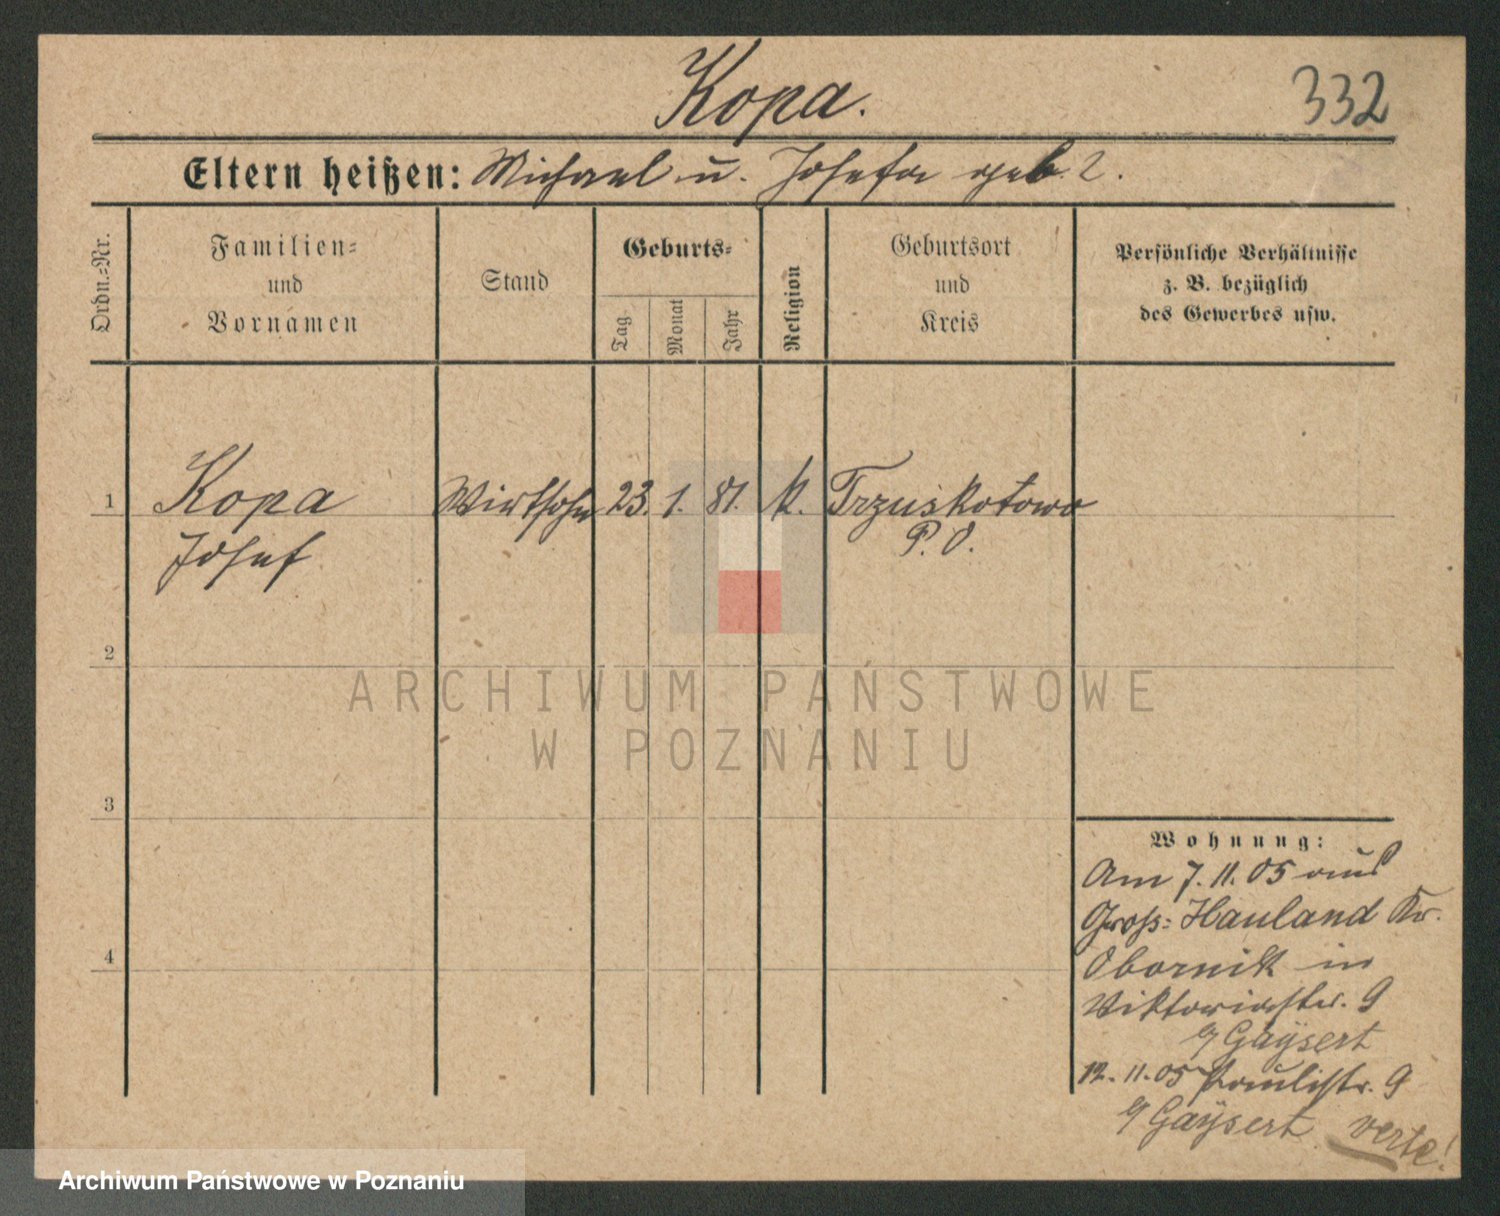 Kopa.
332
Eltern heißen: Michael u. Josefa geb. ?.
Ordn.-Nr.
Familien-
und
Vornamen
Stand
Geburts-
Tag
Monat
Jahr
Religion
Geburtsort
und
Kreis
Persönliche Verhältnisse
z. B. bezüglich
des Gewerbes usw.
1 Kopa Wirtsohn 23. 1. 81. k. Trzuskotowo
Josef P. O.
2
ARCHIWUM PAŃSTWOWE
W POZNANIU
3
Wohnung:
Am 7. 11. 05 aus
Gross-Hauland Kr.
4
Obornik in
Viktoriastr. 9
b/ Gaÿsert
12. 11. 05 Paulistr. 9
b/ Gaÿsert verte!
Archiwum Państwowe w Poznaniu